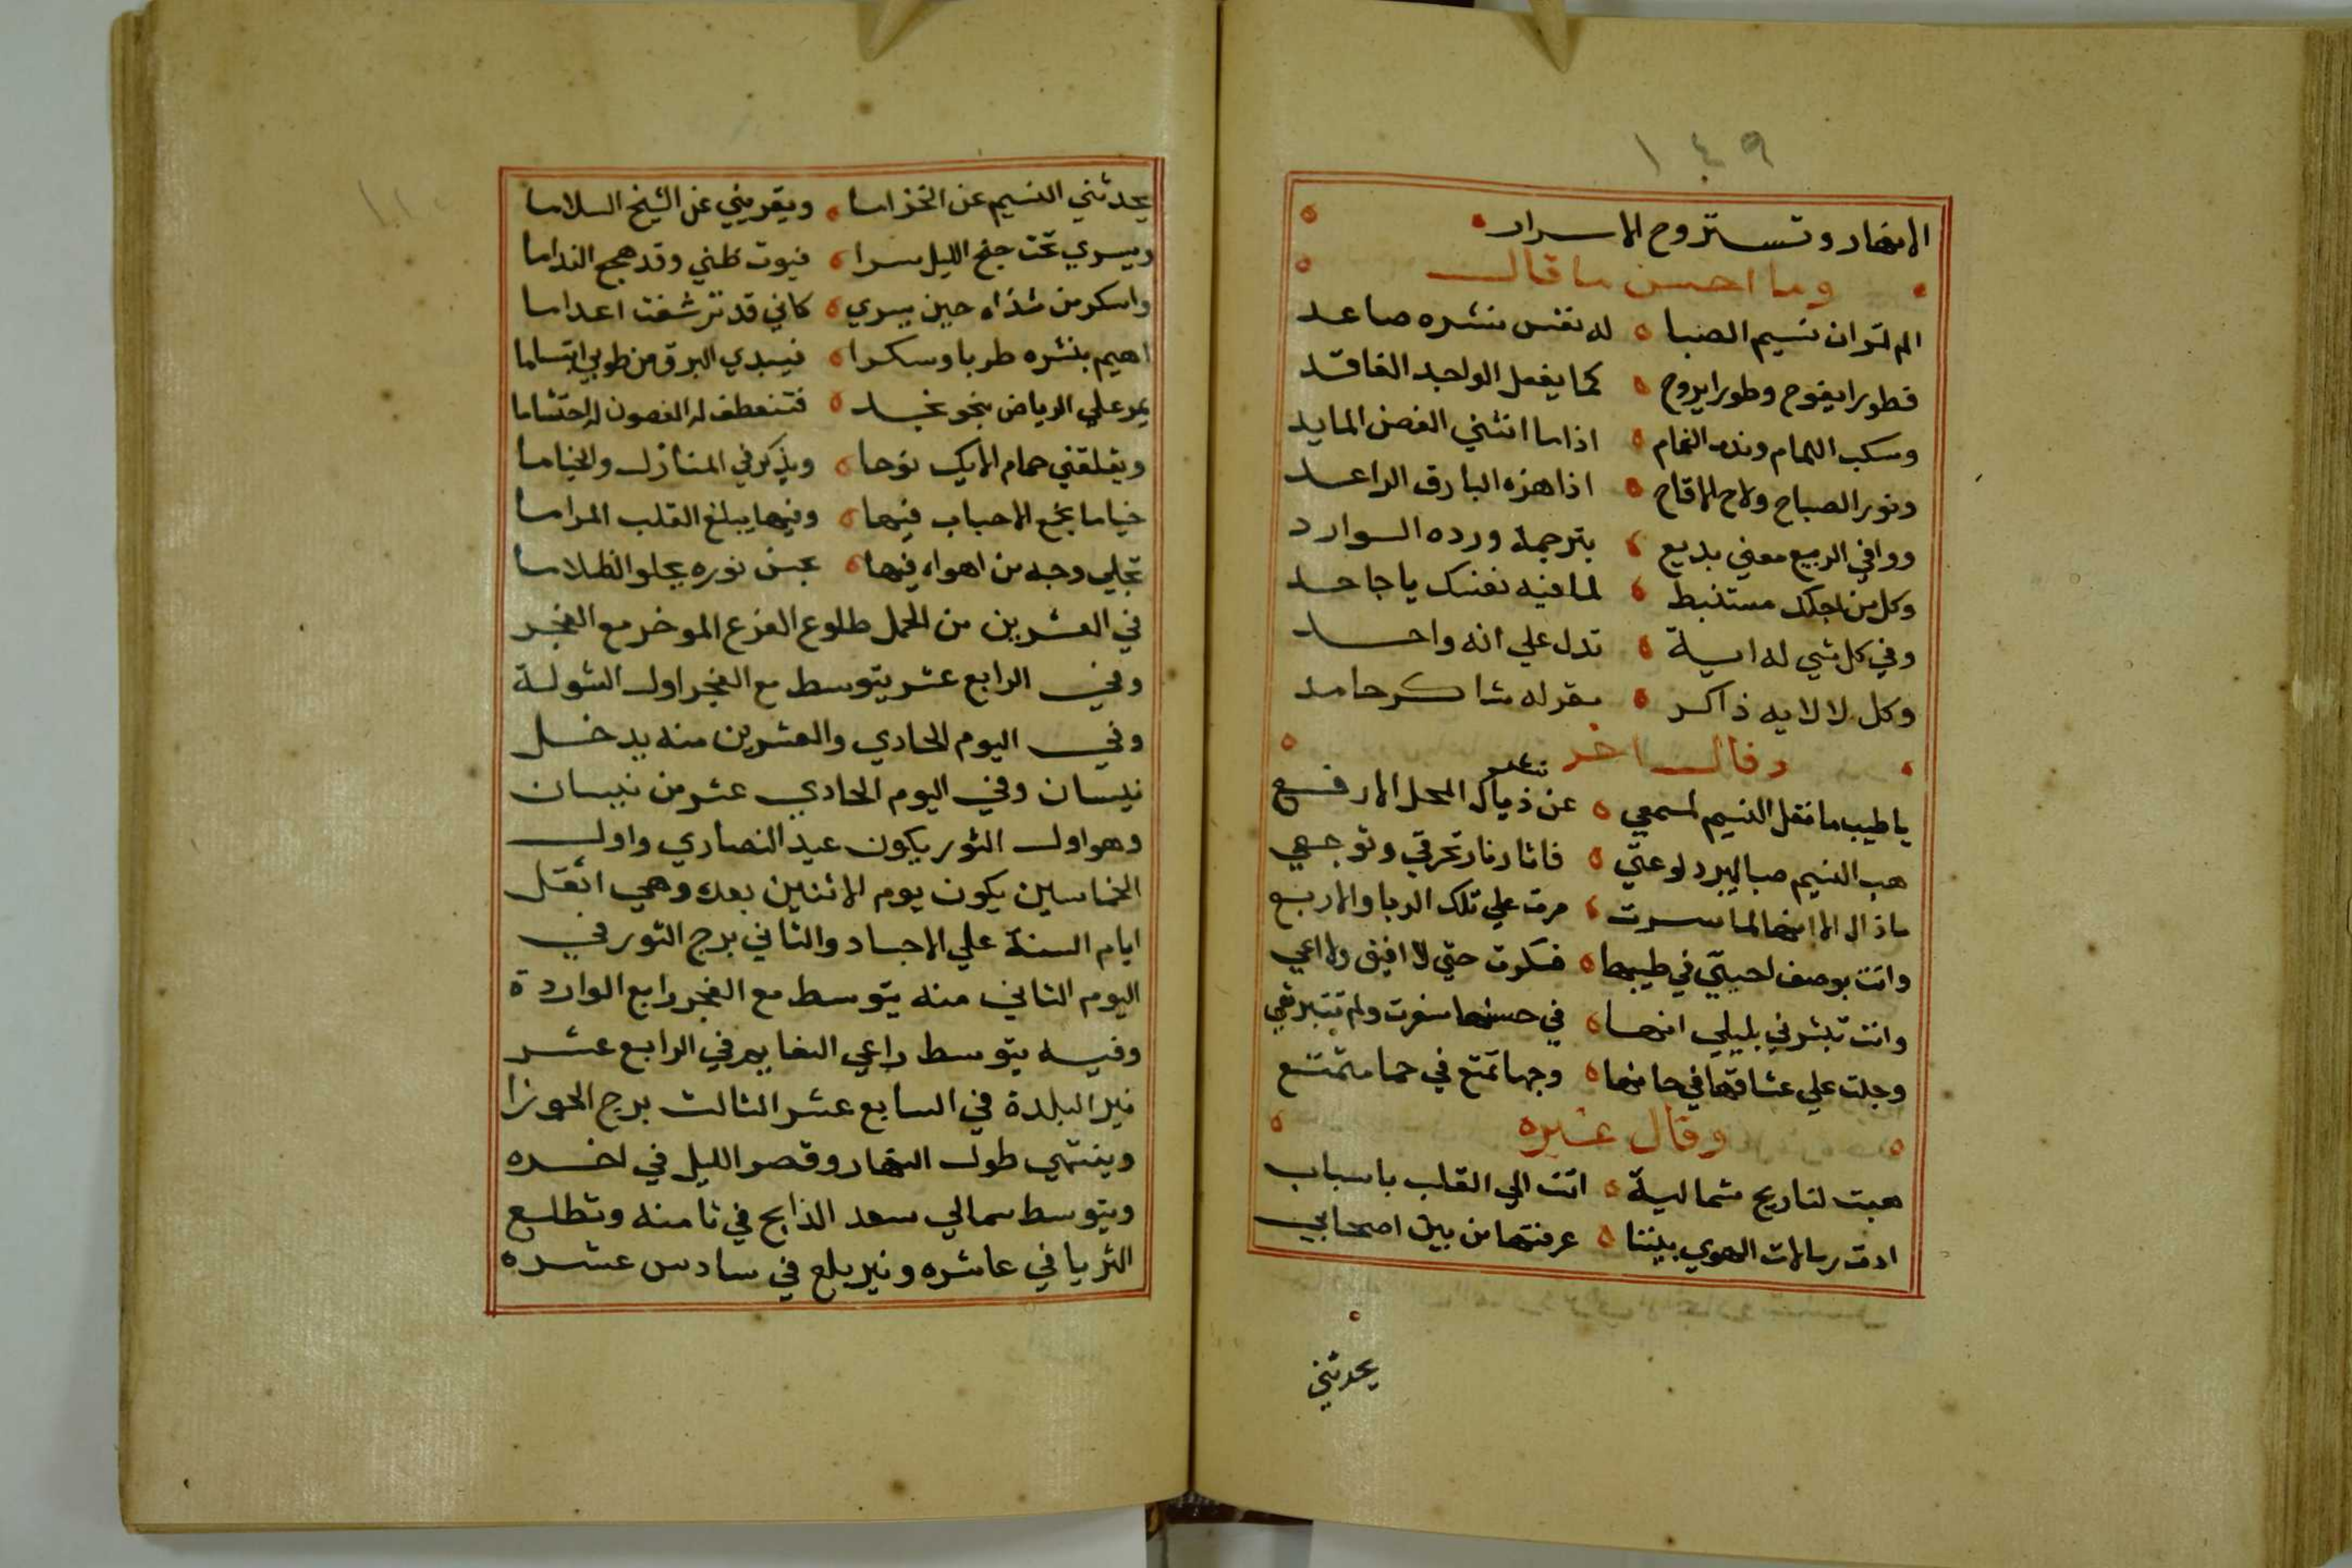 ١٤٩
الانهار وتستروح الاسرار
وما احسن ما قال
الم تر ان نسيم الصبا ه له نفس نشره صاعد
فطورا يفوح وطورا يروح ه كما يفعل الواجد الفاقد
وسكب الغمام وندب الحمام ه اذا ما انثني الغصن المايد
ونور الصباح ولاح الاقاح ه اذا هزه البارق الراعد
ووافي الربيع معني بديع ه بترجمة ورده الوارد
وكل من اجلك مستنبط ه لما فيه نفعك يا جاحد
وفي كل شي له اية ه تدل علي انه واحد
وكل لالايه ذاكر ه مقر له شاكر حامد
وقال اخر
يا طيب ما نقل النسيم لمسمعي ه عن ذياك المحل الارفع
هب النسيم صبا ليبرد لوعتي ه فاثار نار تحرقي وتوجعي
ماذال الا انها لما سرت ه مرت علي تلك الربا والاربع
واتت بوصف احبتي في طيبها ه فسكرت حتي لا افيق ولا اعي
واتت تبشرني بليلي انها ه في حسنها سفرت ولم تتبرقع
وجلت علي عشاقها في حانها ه وجها تمتع في حما متمنع
وقال غيره
هبت لنا ريح شمالية ه اتت الي القلب باسباب
ادت رسالات الهوي بيننا ه عرفتها من بين اصحابي
يحدثني
يحدثني النسيم عن الخزاما ه ويقريني عن الشيخ السلاما
ويسري تحت جنح الليل سرا ه فيوقظني وقد هجع النداما
واسكر من شذاه حين يسري ه كاني قد ترشفت
اهيم بنشره طربا وسكرا ه فيبدي البرق من طربي ابتساما
يمر علي الرياض بنحو نجد ه فتنعطف له الغصون له احتشاما
ويقلقني حمام الايك نوحا ه ويذكرني المنازل والخياما
خياما تجمع الاحباب فيها ه وفيها يبلغ القلب المراما
تجلي وجه من اهواه فيها ه بحسن نوره يجلو الظلاما
في العشرين من الحمل طلوع الفرع الموخر مع الفجر
وفي الرابع عشر يتوسط مع الفجر اول الشولة
وفي اليوم الحادي والعشرين منه يدخل
نيسان وفي اليوم الحادي عشر من نيسان
وهو اول الثور يكون عيد النصاري واول
الخماسين يكون يوم الاثنين بعده وهي اثقل
ايام السنة علي الاجساد والثاني برج الثور في
اليوم الثاني منه يتوسط مع الفجر رابع الواردة
وفيه يتوسط راعي النعايم في الرابع عشر
نير البلدة في السابع عشر الثالث برج الجوزا
وينتهي طول النهار وقصر الليل في اخره
ويتوسط سمالي سعد الذابح في ثامنه وتطلع
الثريا في عاشره ونير بلع في سادس عشره